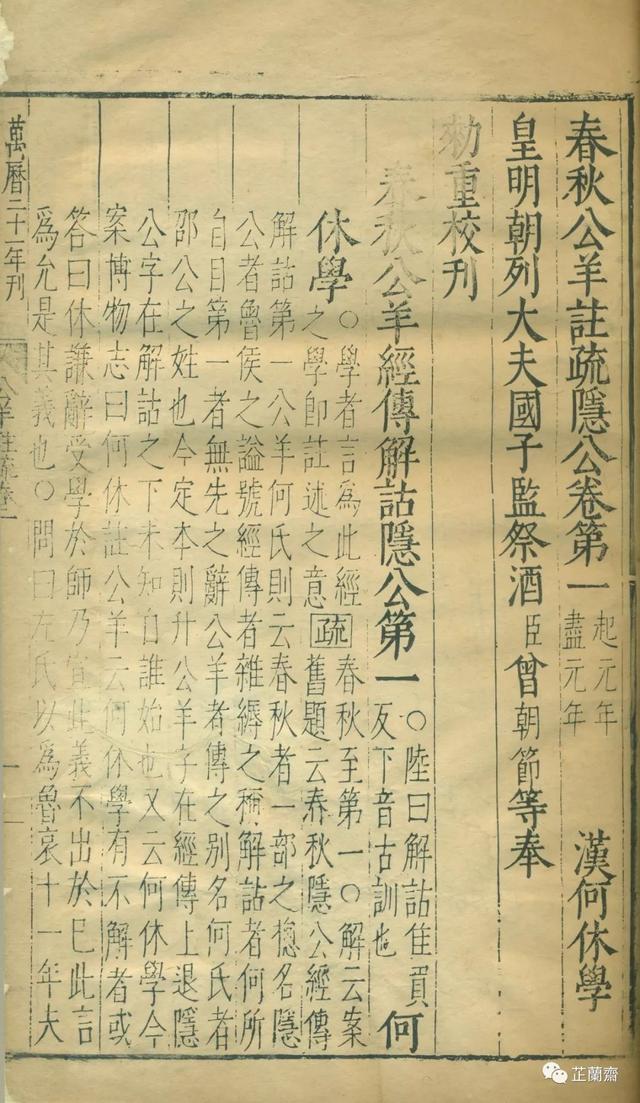 春秋公羊註疏隱公卷第一 起元年 盡元年 漢何休學
皇明朝列大夫國子監祭酒臣曾朝節等奉
勑重校刊
春秋公羊經傳解詁隱公第一 ○陸曰解詁佳買 反下音古訓也 何
休學 ○學者言為此經 之學即註述之意 疏 春秋至第一○解云案 舊題云春秋隱公經傳
解詁第一公羊何氏則云春秋者一部之揔名隱
公者魯侯之謚號經傳者雜縟之稱解詁者何所
自目第一者無先之辭公羊者傳之別名何氏者
邵公之姓也今定本則升公羊字在經傳上退隱
公字在解詁之下未知自誰始也又云何休學今
案博物志曰何休註公羊云何休學有不解者或
答曰休謙辭受學於師乃宣此義不出於已此言
為允是其義也○問曰左氏以為魯哀十一年夫
萬曆二十一年刊 公羊註疏卷一 一
芷蘭齋